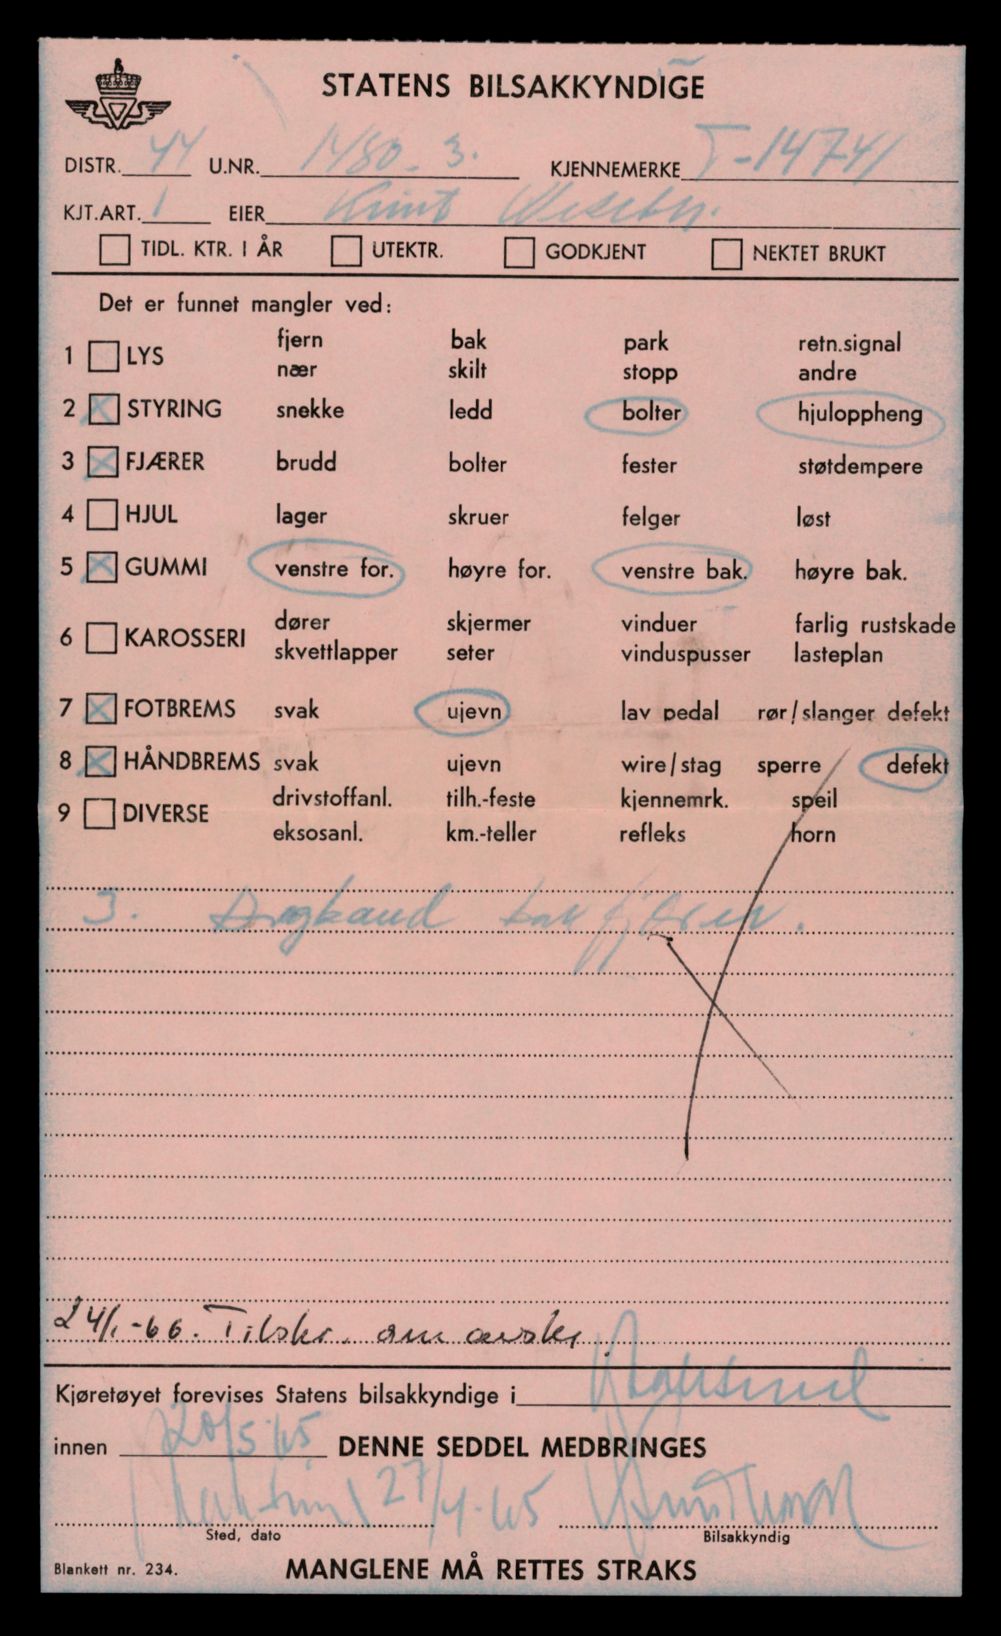 STATENS BILSAKKYNDIGE
DISTR. 44 U.NR. 1480-3. KJENNEMERKE T-14741
KJT.ART. 1 EIER Knut
TIDL. KTR. I ÅR UTEKTR. GODKJENT NEKTET BRUKT
Det er funnet mangler ved:
1 LYS fjern bak park retn.signal
nær skilt stopp andre
2 STYRING snekke ledd bolter hjuloppheng
3 FJÆRER brudd bolter fester støtdempere
4 HJUL lager skruer felger løst
5 GUMMI venstre for. høyre for. venstre bak. høyre bak.
6 KAROSSERI dører skjermer vinduer farlig rustskade
skvettlapper seter vinduspusser lasteplan
7 FOTBREMS svak ujevn lav pedal rør/slanger defekt
8 HÅNDBREMS svak ujevn wire/stag sperre defekt
9 DIVERSE drivstoffanl. tilh.-feste kjennemrk. speil
eksosanl. km.-teller refleks horn
3. bak fjærer.
24/1-66. Tilskr. om avskr.
Kjøretøyet forevises Statens bilsakkyndige i
innen 20/5 65 DENNE SEDDEL MEDBRINGES
27/4-65
Sted, dato Bilsakkyndig
Blankett nr. 234. MANGLENE MÅ RETTES STRAKS